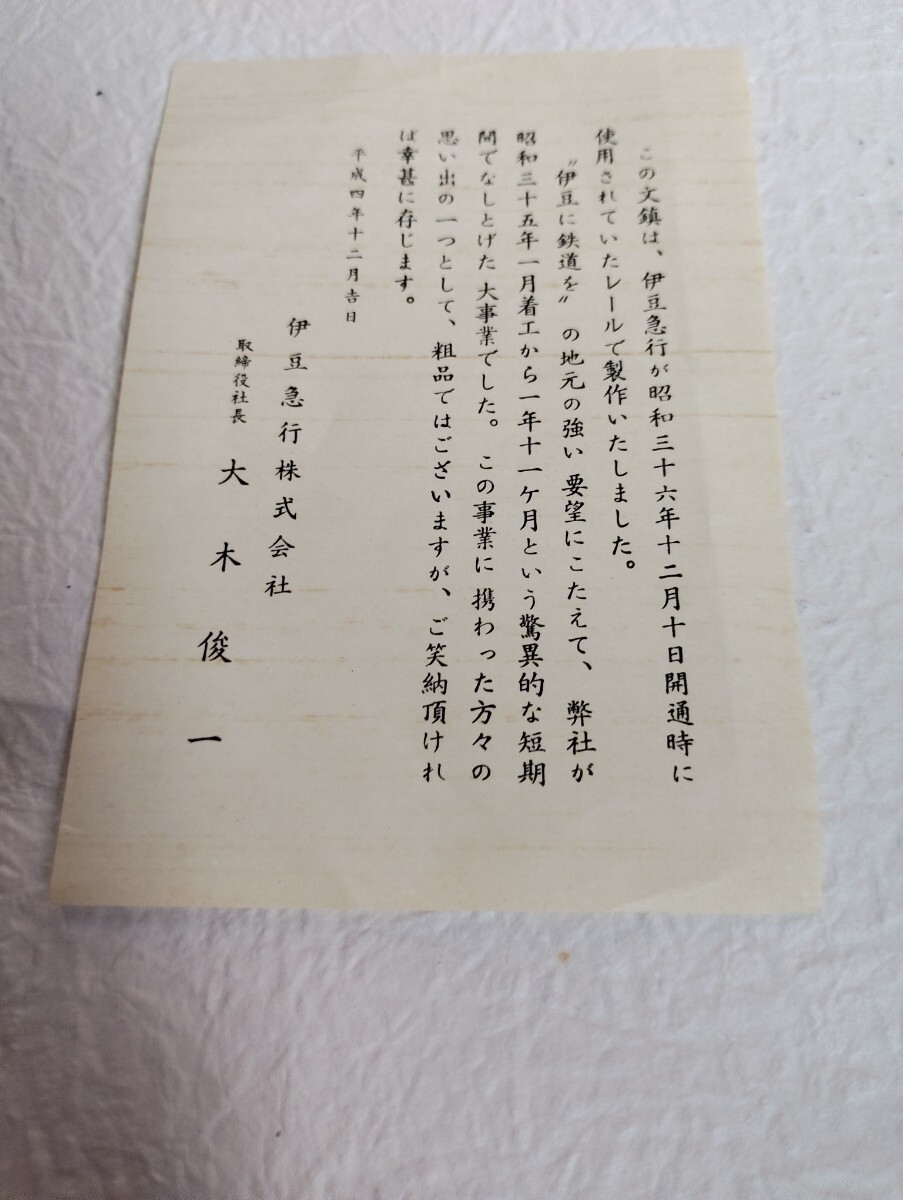 この文鎮は、伊豆急行が昭和三十六年十二月十日開通時に
使用されていたレールで製作いたしました。
〝伊豆に鉄道を〟の地元の強い要望にこたえて、弊社が
昭和三十五年一月着工から一年十一ケ月という驚異的な短期
間でなしとげた大事業でした。この事業に携わった方々の
思い出の一つとして、粗品ではございますが、ご笑納頂けれ
ば幸甚に存じます。
平成四年十二月吉日
伊豆急行株式会社
取締役社長 大木俊一